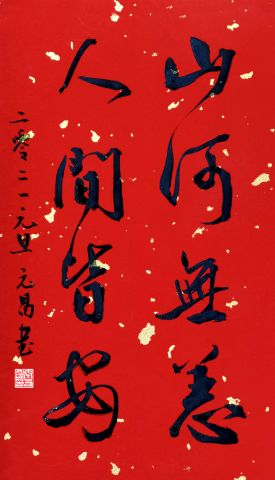 山河無恙
人間皆安
二零二一元旦 元昌书